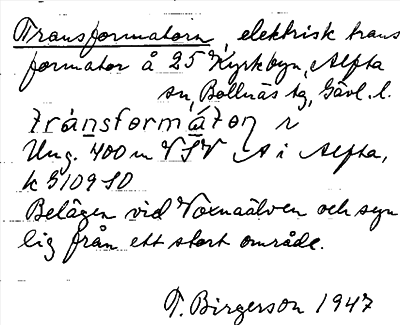 Transformatorn, elektrisk trans
formator å 25 Kyrkbyn, Alfta
sn, Bollnäs tg, Gävl. l.
tránsformáton r
Ung. 400 m VSV A i Alfta,
k 5109 SO
Belägen vid Voxnaälven och syn
lig från ett stort område.
T. Birgerson 1947